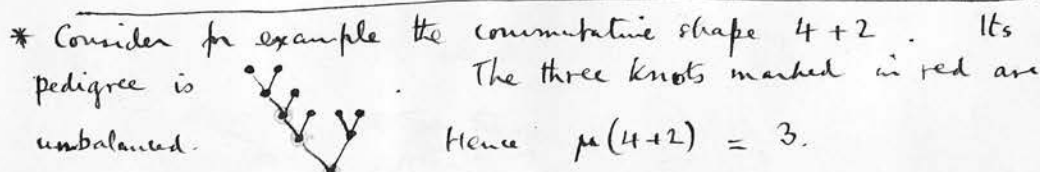 * Consider for example the commutative shape 4 + 2 . Its
pedigree is . The three knots marked in red are
unbalanced. Hence μ(4+2) = 3.